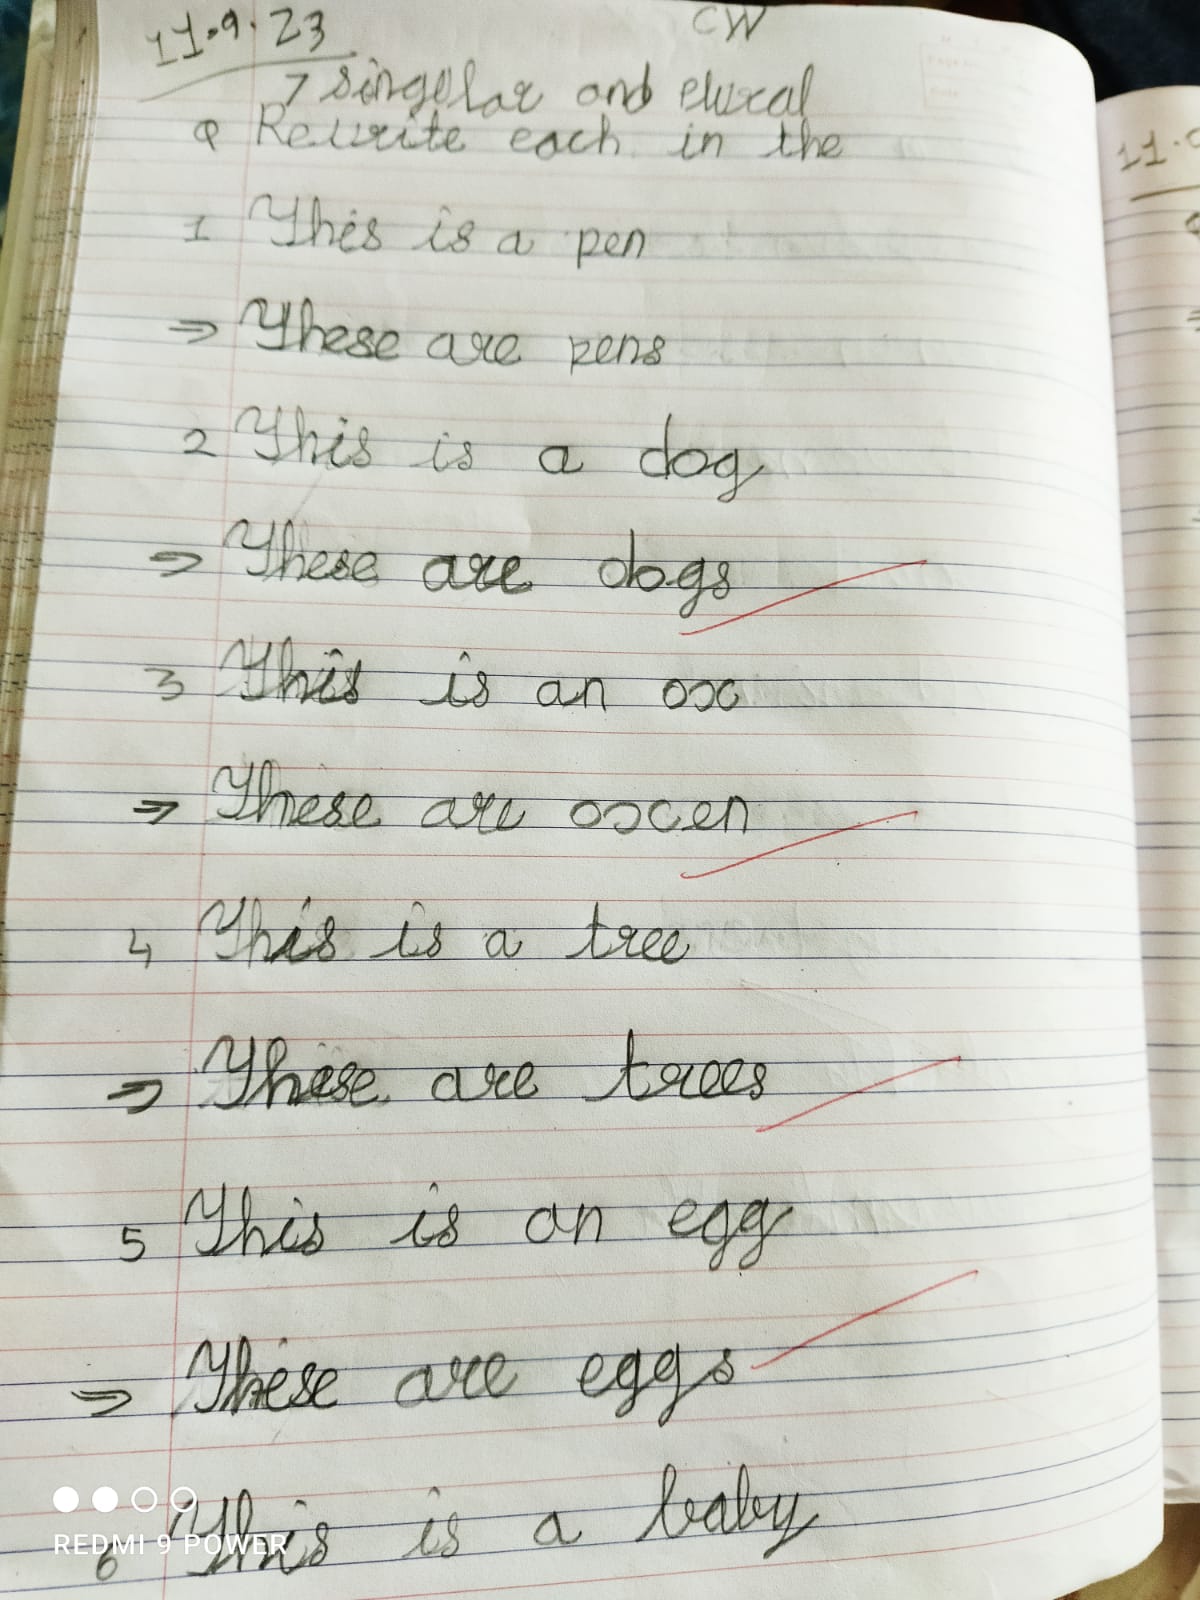 CW
11.9.23
7 Singular and plural
Q Rewrite each in the
1 This is a pen
⇒ These are pens
2 This is a dog
⇒ These are dogs
3 This is an ox
⇒ These are oxen
4 This is a tree
⇒ These are trees
5 This is an egg
⇒ These are eggs
6 This is a baby
REDMI 9 POWER